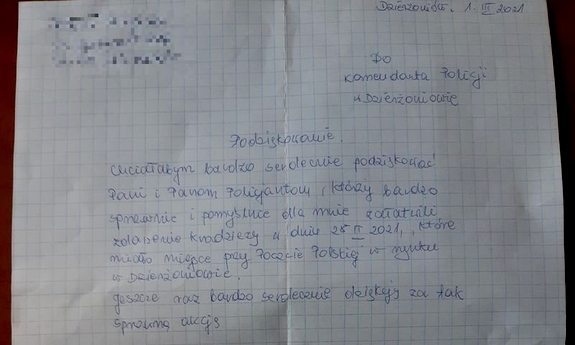 Dzierżoniów. 1. III 2021
Do
Komendanta Policji
w Dzierżoniowie
Podziękowanie.
Chciałabym bardzo serdecznie podziękować
Pani i Panom Policjantom, którzy bardzo
sprawnie i pomyślnie dla mnie załatwili
zdarzenie kradzieży w dniu 25 II 2021, które
miało miejsce przy Poczcie Polskiej w rynku
w Dzierżoniowie.
Jeszcze raz bardzo serdecznie dziękuję za tak
sprawną akcję